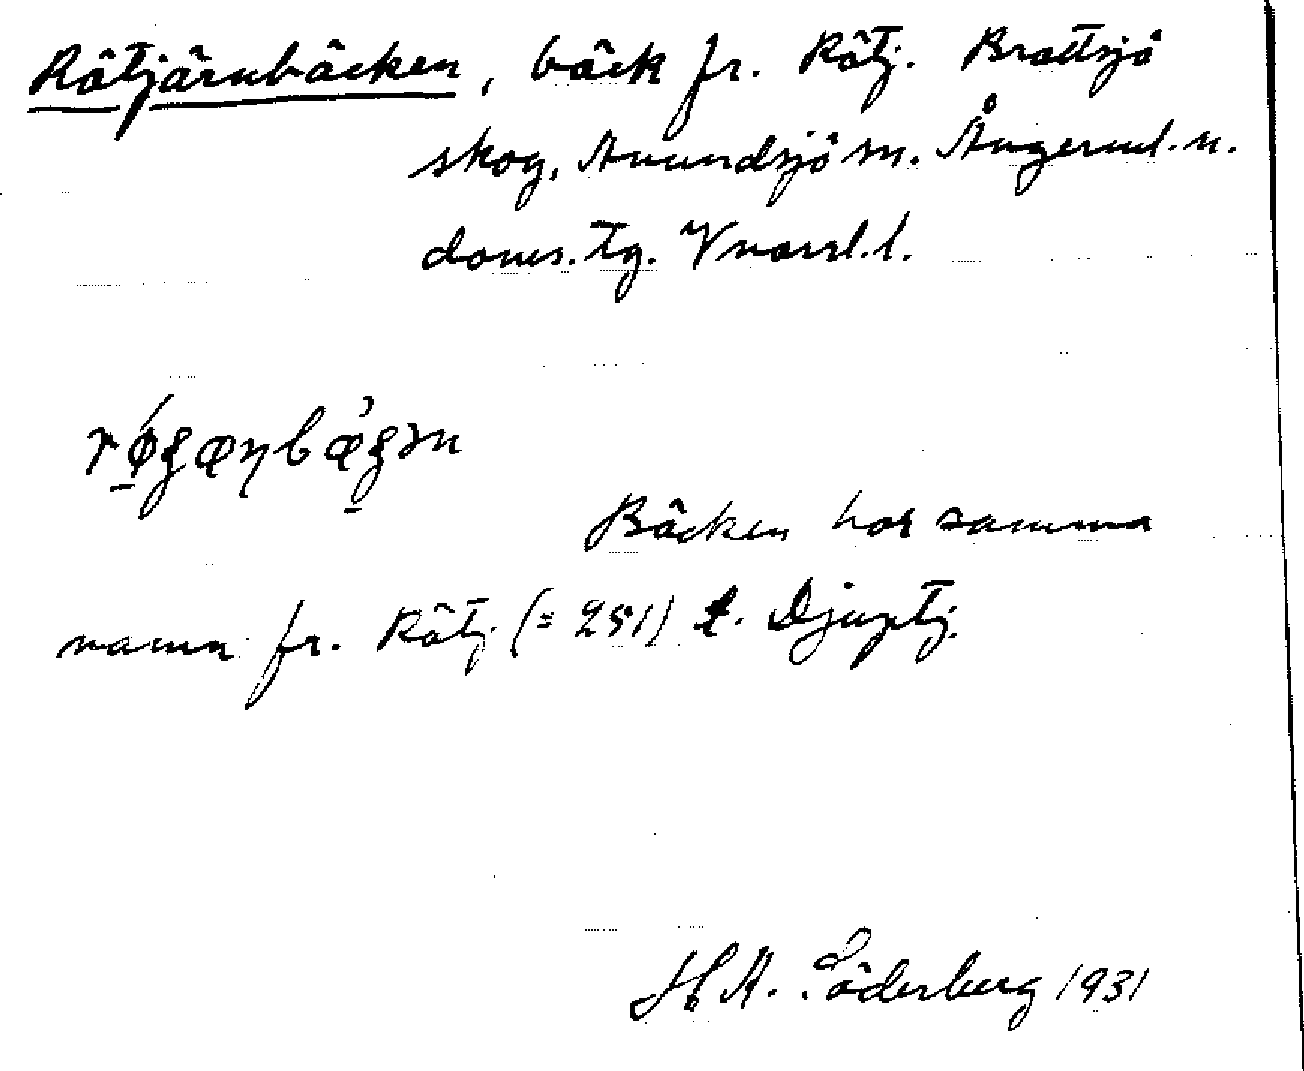 Rötjärnbäcken, bäck fr. Rötj. Brattsjö
skog, Anundsjö sn. Ångerml. n.
doms. tg. Vnorrl. l.
Bäcken har samma
namn fr. Rötj. (= 251) t. Djuptj.
H. A. Söderberg 1931